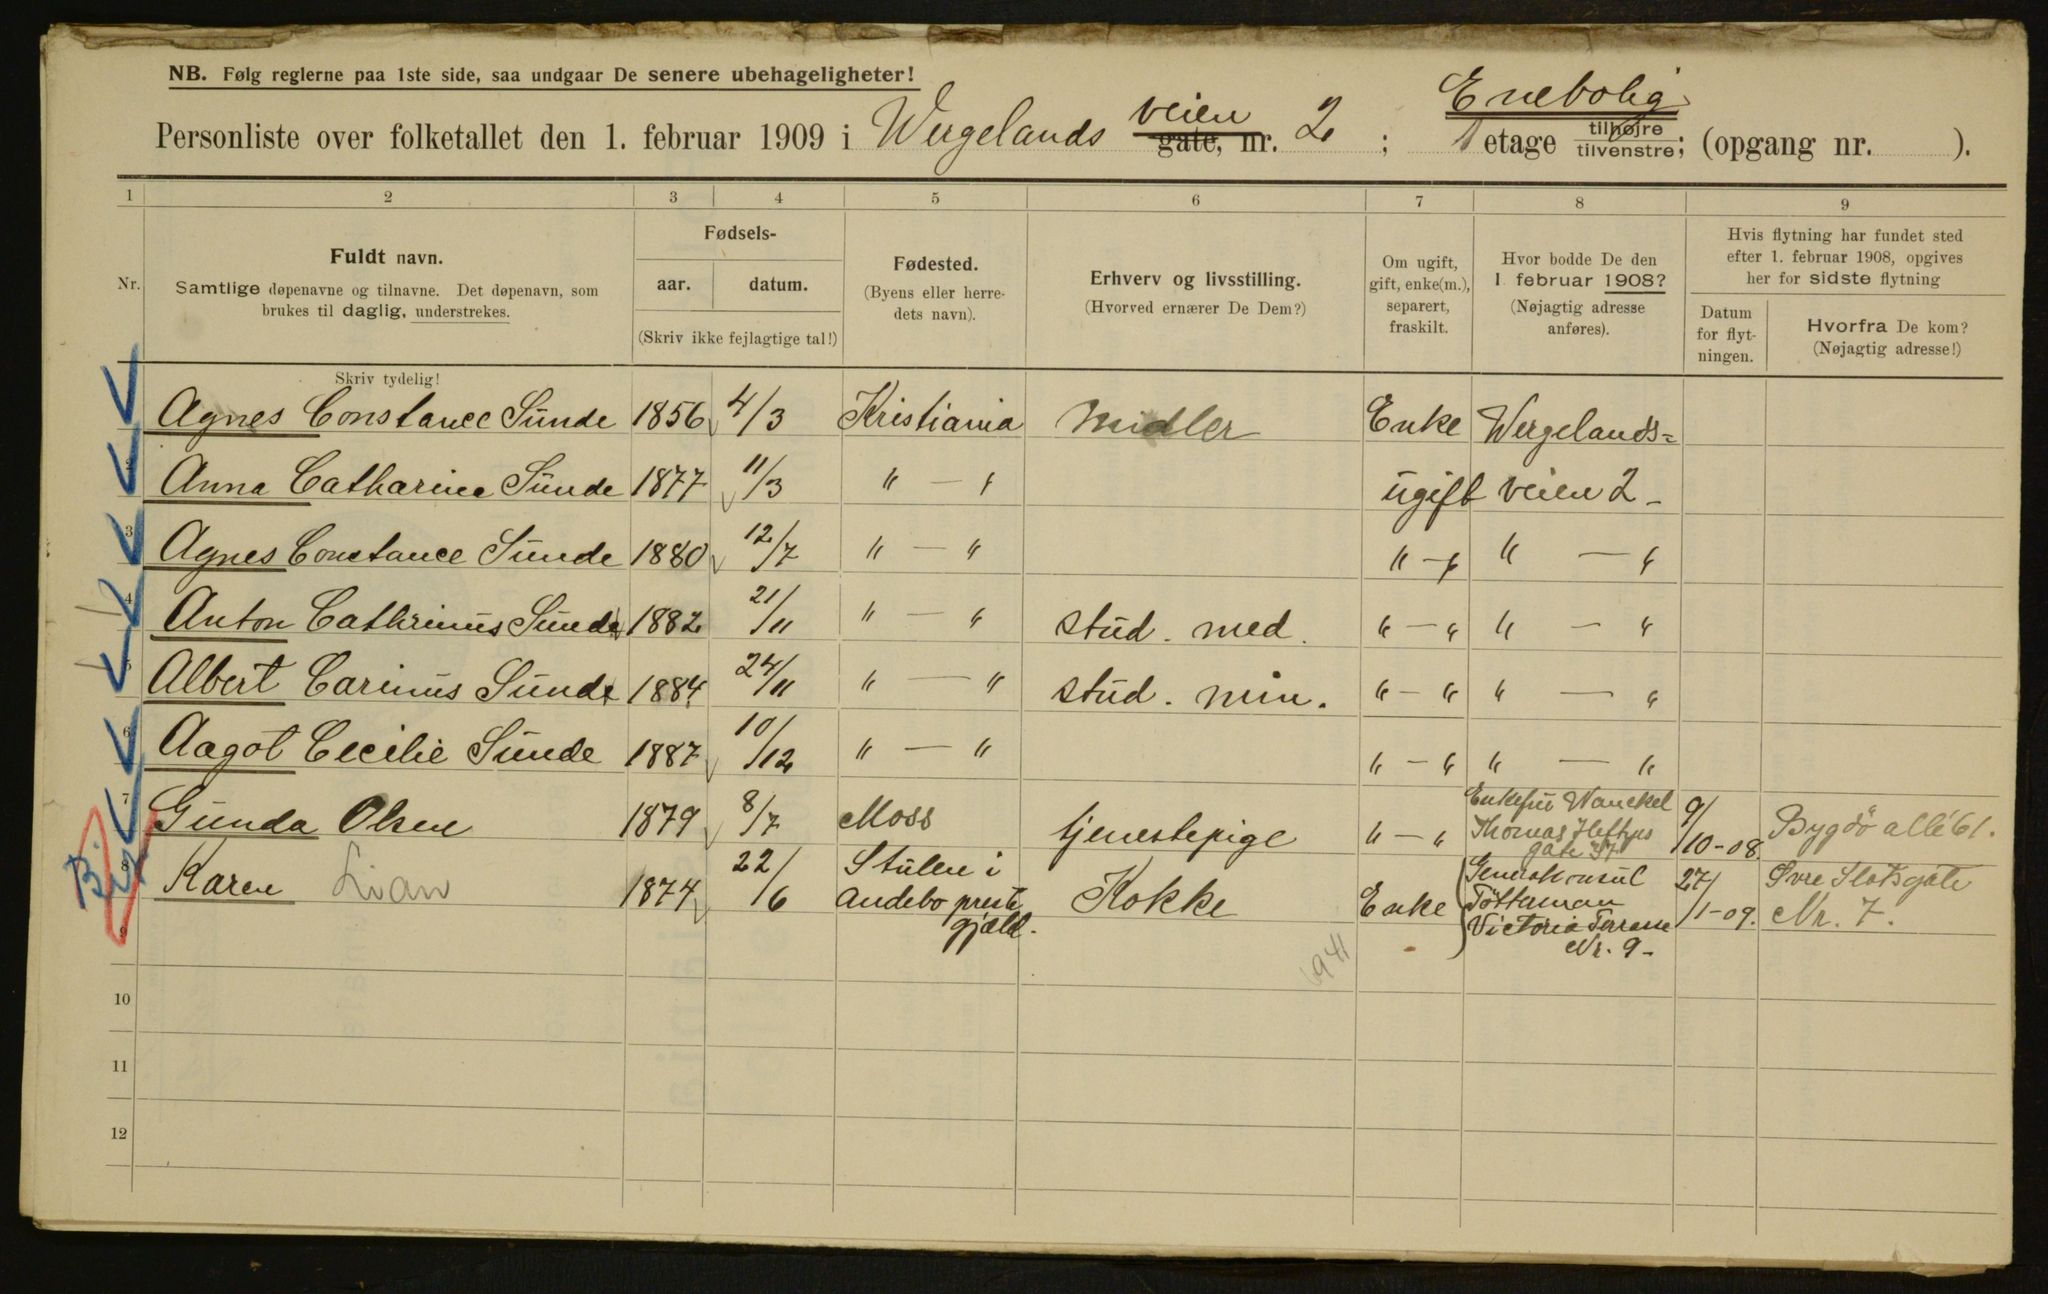 NB. Følg reglerne paa 1ste side, saa undgaar De senere ubehageligheter!
Enebolig
Personliste over folketallet den 1. februar 1909 i Wergelands veien gate, nr. 2 ; 1 etage tilhøjre tilvenstre; (opgang nr. ).
1 2 3 4 5 6 7 8 9
Nr.
Fuldt navn.
Samtlige døpenavne og tilnavne. Det døpenavn, som
brukes til daglig, understrekes.
Skriv tydelig!
Fødsels-
aar. datum.
(Skriv ikke fejlagtige tal!)
Fødested.
(Byens eller herre-
dets navn).
Erhverv og livsstilling.
(Hvorved ernærer De Dem?)
Om ugift,
gift, enke(m.),
separert,
fraskilt.
Hvor bodde De den
1 februar 1908?
(Nøjagtig adresse
anføres).
Hvis flytning har fundet sted
efter 1. februar 1908, opgives
her for sidste flytning
Datum
for flyt-
ningen.
Hvorfra De kom?
(Nøjagtig adresse!)
Agnes Constance Sunde 1856 4/3 Kristiania Midler Enke Wergelands=
2 Anna Catharine Sunde 1877 11/3 " — " ugift veien 2 -
3 Agnes Constance Sunde 1880 12/7 " — " " — " " — "
4 Anton Cathrinus Sunde 1882 21/11 " — " stud. med. " — " " — "
5 Albert Carinus Sunde 1884 24/11 " — " stud. min. " — " " — "
6 Aagot Cecilie Sunde 1887 10/12 " — " " — " " — "
7 Gunda Olsen 1879 8/7 Moss tjenestepige " — " Enkefru Wanckel
Thomas Heftyes
gate 9/10-08 Bygdö allé 61.
8 Karen Lian 1874 22/6 Stulen i
Andebo preste
gjæld. Kokke Enke Generalkonsul
Tötterman
Victoria Terrasse
Nr. 9 - 27/1-09. Øvre Slotsgate
Nr. 7.
9
10
11
12